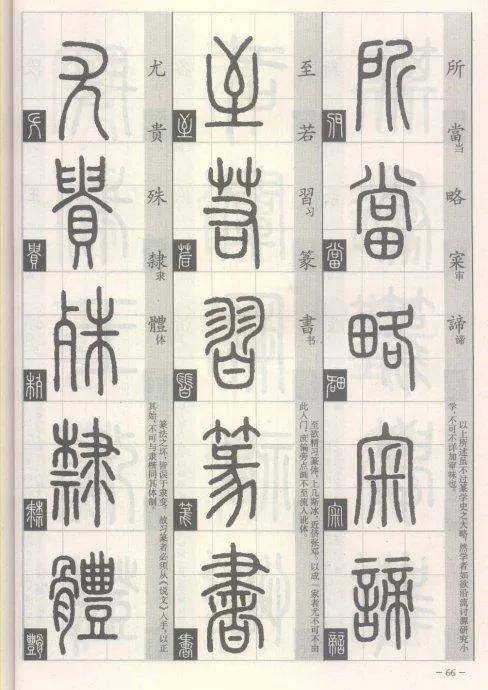 所當当略寀审諦谛
所當略寀諦
以上所述虽不过篆学史之大略，然学者如欲沿流讨源研究小
学，不可不详加审味也。
至若習习篆書书
至若習篆書
至欲精习篆体，上几斯冰，近侪张邓，以成一家者尤不可不由
此入门，庶偏旁点画不至流入讹体。
尤贵殊隸隶體体
尤貴殊隸體
篆法之坏，皆误于隶变。故习篆者必须从《说文》入手，以正
其始，不可与隶楷同其体制。
- 66 -